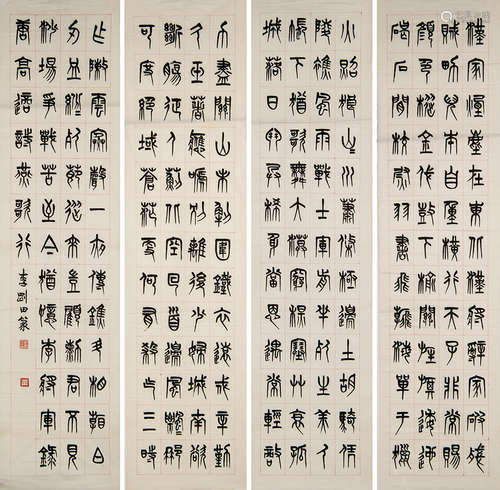 漢家煙塵在東北漢將辭家破殘
賊男兒本自重橫行天子非常賜
顏色摐金伐鼓下榆關旌旆逶迤
碣石間校尉羽書飛瀚海單于獵
火照狼山山川蕭條極邊土胡騎憑
陵雜風雨戰士軍前半死生美人
帳下猶歌舞大漠窮秋塞草腓孤
城落日鬥兵稀身當恩遇常輕敵
力盡關山未解圍鐵衣遠戍辛勤
久玉箸應啼別離後少婦城南欲
斷腸征人薊北空回首邊風飄飄那
可度絕域蒼茫更何有殺氣三時
作陣雲寒聲一夜傳刁斗相看白
刃血紛紛死節從來豈顧勳君不見
沙場爭戰苦至今猶憶李將軍錄
唐高適詩燕歌行 李剛田篆